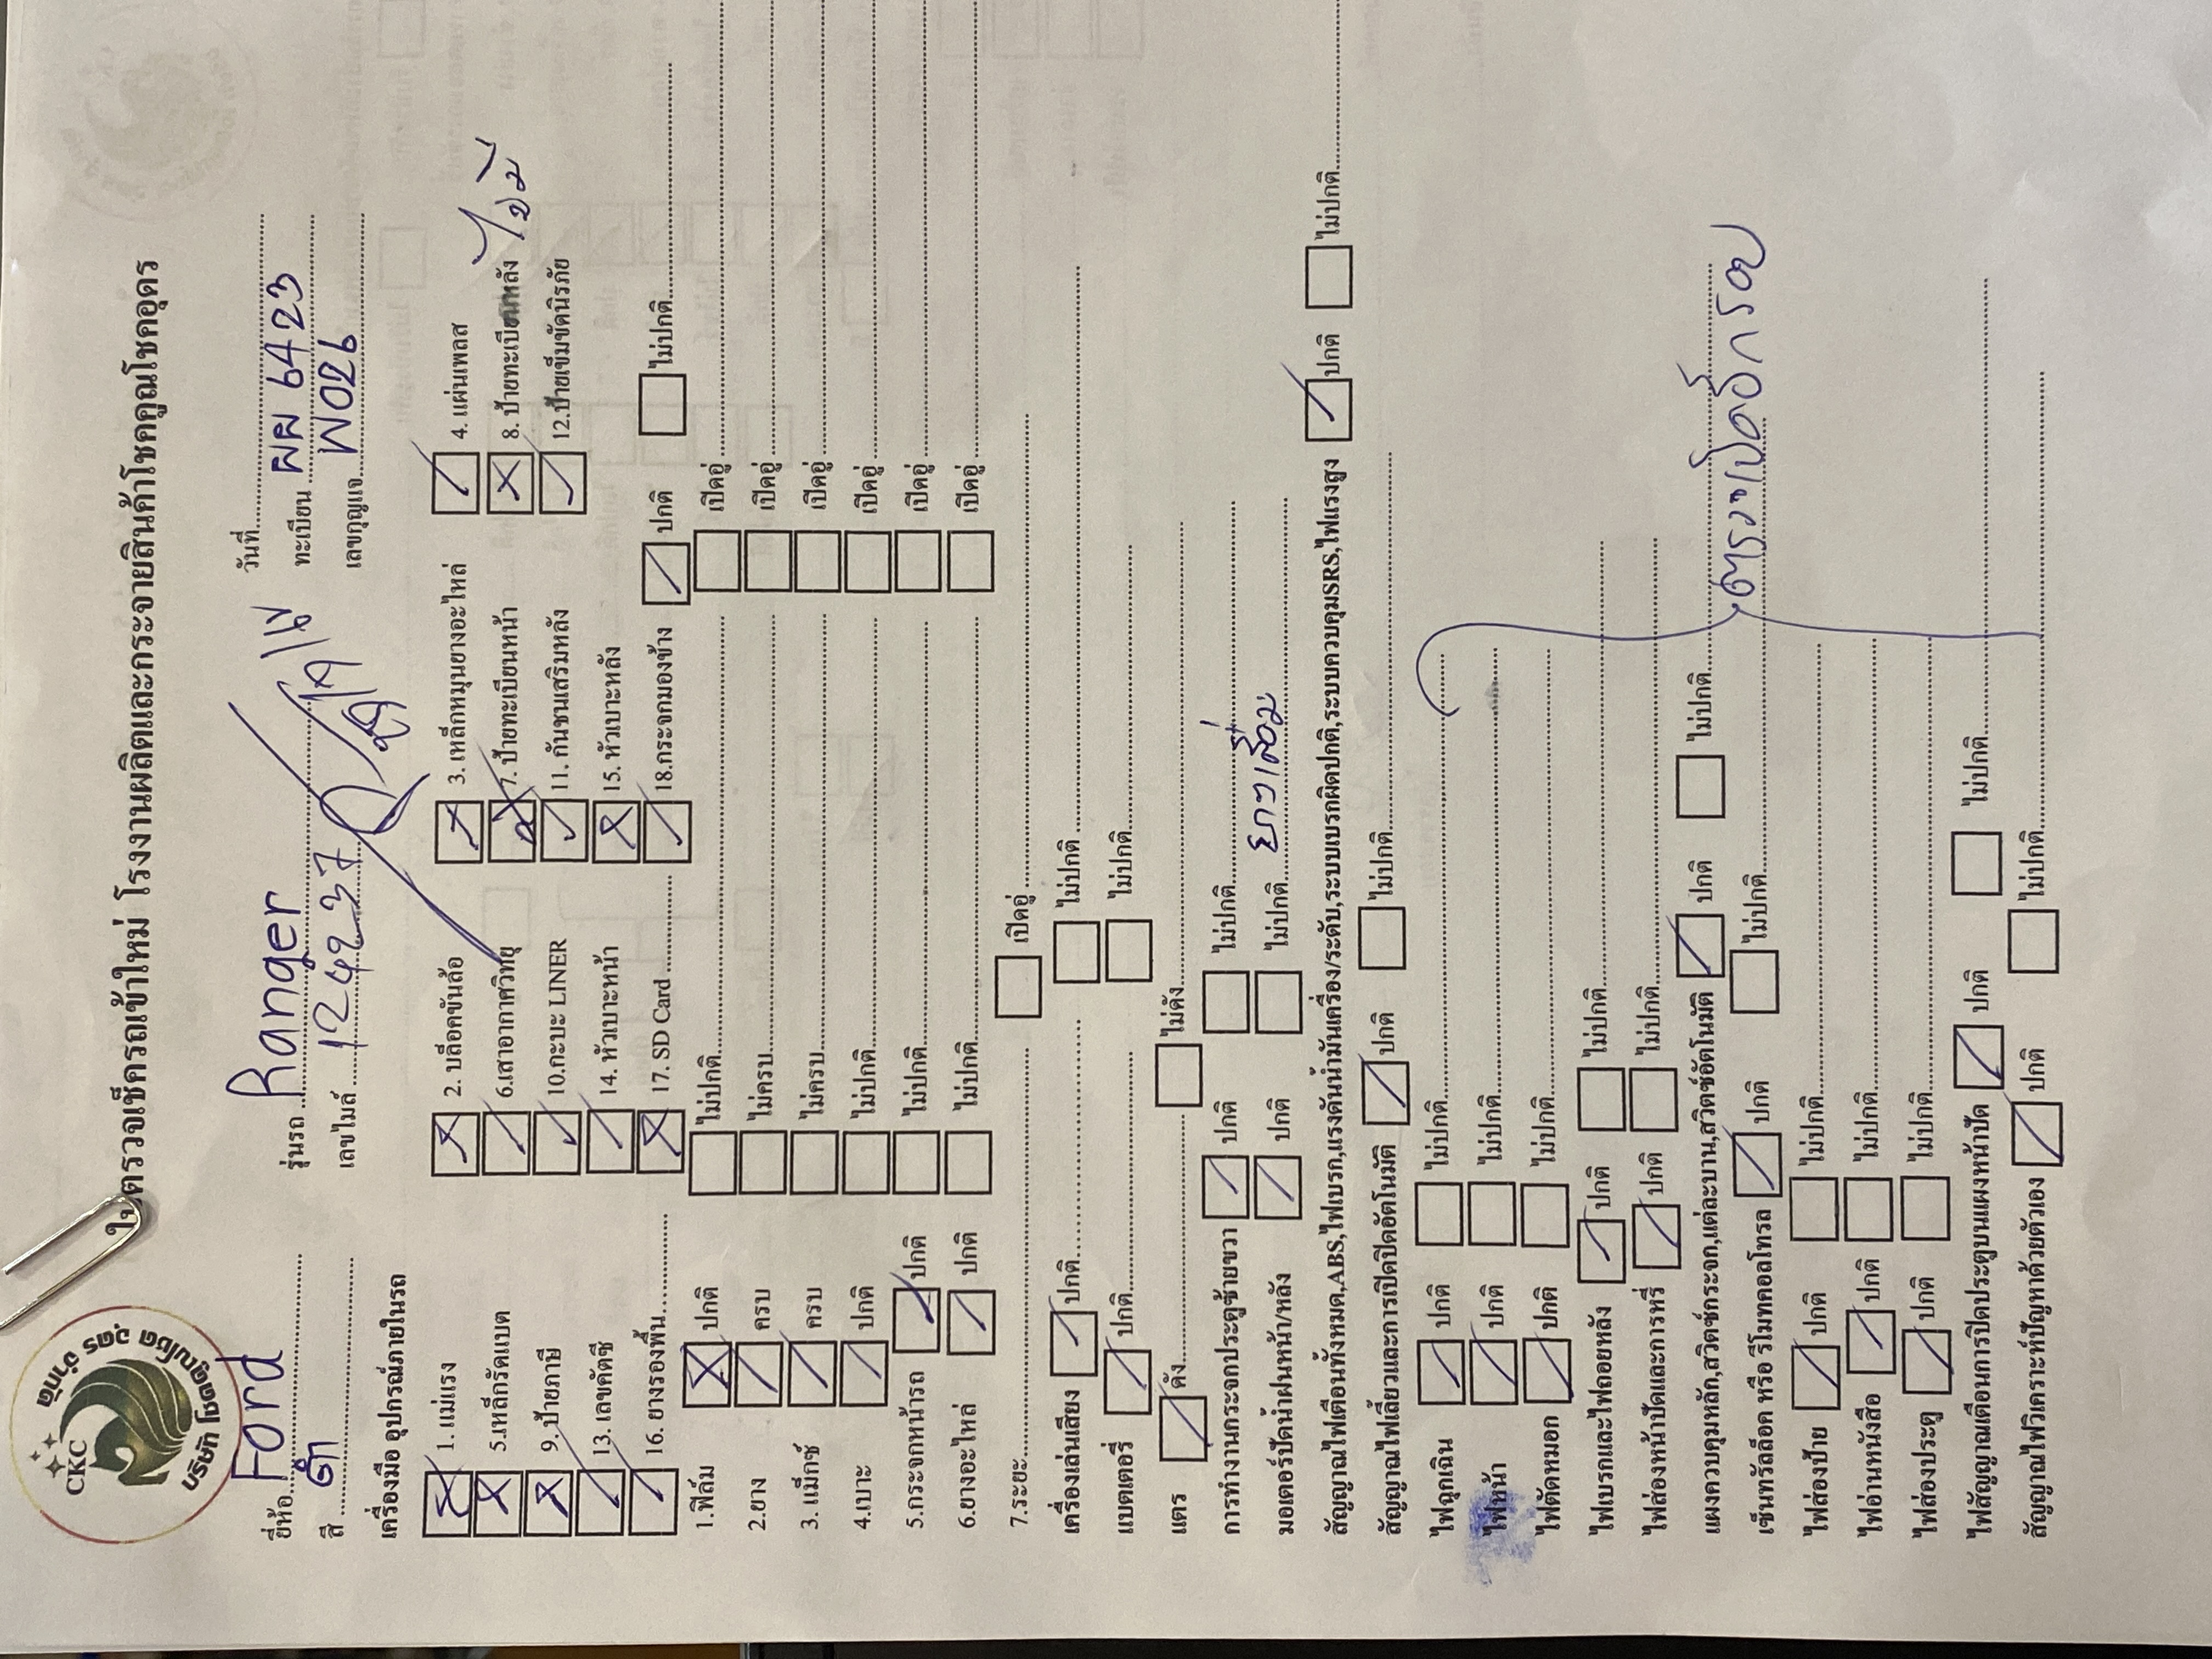 CKC
บริษัท โชคคูณโชค อุดร จำกัด
ใบตรวจเช็ครถเข้าใหม่ โรงงานผลิตและกระจายสินค้าโชคคูณโชคอุดร
ยี่ห้อ Ford รุ่นรถ Ranger วันที่
สี ดำ เลขไมล์ 124237 ทะเบียน ผผ 6423
เลขกุญแจ W026
เครื่องมือ อุปกรณ์ภายในรถ
1. แม่แรง 2. บล็อคขันล้อ 3. เหล็กหมุนยางอะไหล่ 4. แผ่นเพลส
5.เหล็กรัดแบต 6.เสาอากาศวิทยุ 7. ป้ายทะเบียนหน้า 8. ป้ายทะเบียนหลัง ไม่มี
9.ป้ายภาษี 10.กะบะ LINER 11. กันชนเสริมหลัง 12.ป้ายเข็มขัดนิรภัย
13. เลขคัตซี 14. หัวเบาะหน้า 15. หัวเบาะหลัง
16. ยางรองพื้น 17. SD Card 18.กระจกมองข้าง ปกติ ไม่ปกติ
1.ฟิล์ม ปกติ ไม่ปกติ เปิดอู่
2.ยาง ครบ ไม่ครบ เปิดอู่
3. แม็กซ์ ครบ ไม่ครบ เปิดอู่
4.เบาะ ปกติ ไม่ปกติ เปิดอู่
5.กระจกหน้ารถ ปกติ ไม่ปกติ เปิดอู่
6.ยางอะไหล่ ปกติ ไม่ปกติ เปิดอู่
7.ระยะ: เปิดอู่
เครื่องเล่นเสียง ปกติ ไม่ปกติ
แบตเตอรี่ ปกติ ไม่ปกติ
แตร ดัง ไม่ดัง
การทำงานกระจกประตูซ้ายขวา ปกติ ไม่ปกติ
มอเตอร์ปัดน้ำฝนหน้า/หลัง ปกติ ไม่ปกติ ยางเสื่อม
สัญญาณไฟเตือนทั้งหมด,ABS,ไฟเบรก,แรงดันน้ำมันเครื่อง/ระดับ,ระบบเบรกผิดปกติ,ระบบควบคุมSRS,ไฟแรงสูง ปกติ ไม่ปกติ
สัญญาณไฟเลี้ยวและการเปิดปิดอัตโนมัติ ปกติ ไม่ปกติ
ไฟฉุกเฉิน ปกติ ไม่ปกติ
ไฟหน้า ปกติ ไม่ปกติ
ไฟตัดหมอก ปกติ ไม่ปกติ
ไฟเบรกและไฟถอยหลัง ปกติ ไม่ปกติ
ไฟส่องหน้าปัดและการหรี่ ปกติ ไม่ปกติ
แผงควบคุมหลัก,สวิตช์กระจก,แต่ละบาน,สวิตช์อัตโนมัติ ปกติ ไม่ปกติ
เซ็นทรัลล็อค หรือ รีโมทคอลโทรล ปกติ ไม่ปกติ
ไฟส่องป้าย ปกติ ไม่ปกติ
ไฟอ่านหนังสือ ปกติ ไม่ปกติ
ไฟส่องประตู ปกติ ไม่ปกติ
ไฟสัญญาณเตือนการปิดประตูบนแผงหน้าปัด ปกติ ไม่ปกติ
สัญญาณไฟวิเคราะห์ปัญหาด้วยตัวเอง ปกติ ไม่ปกติ